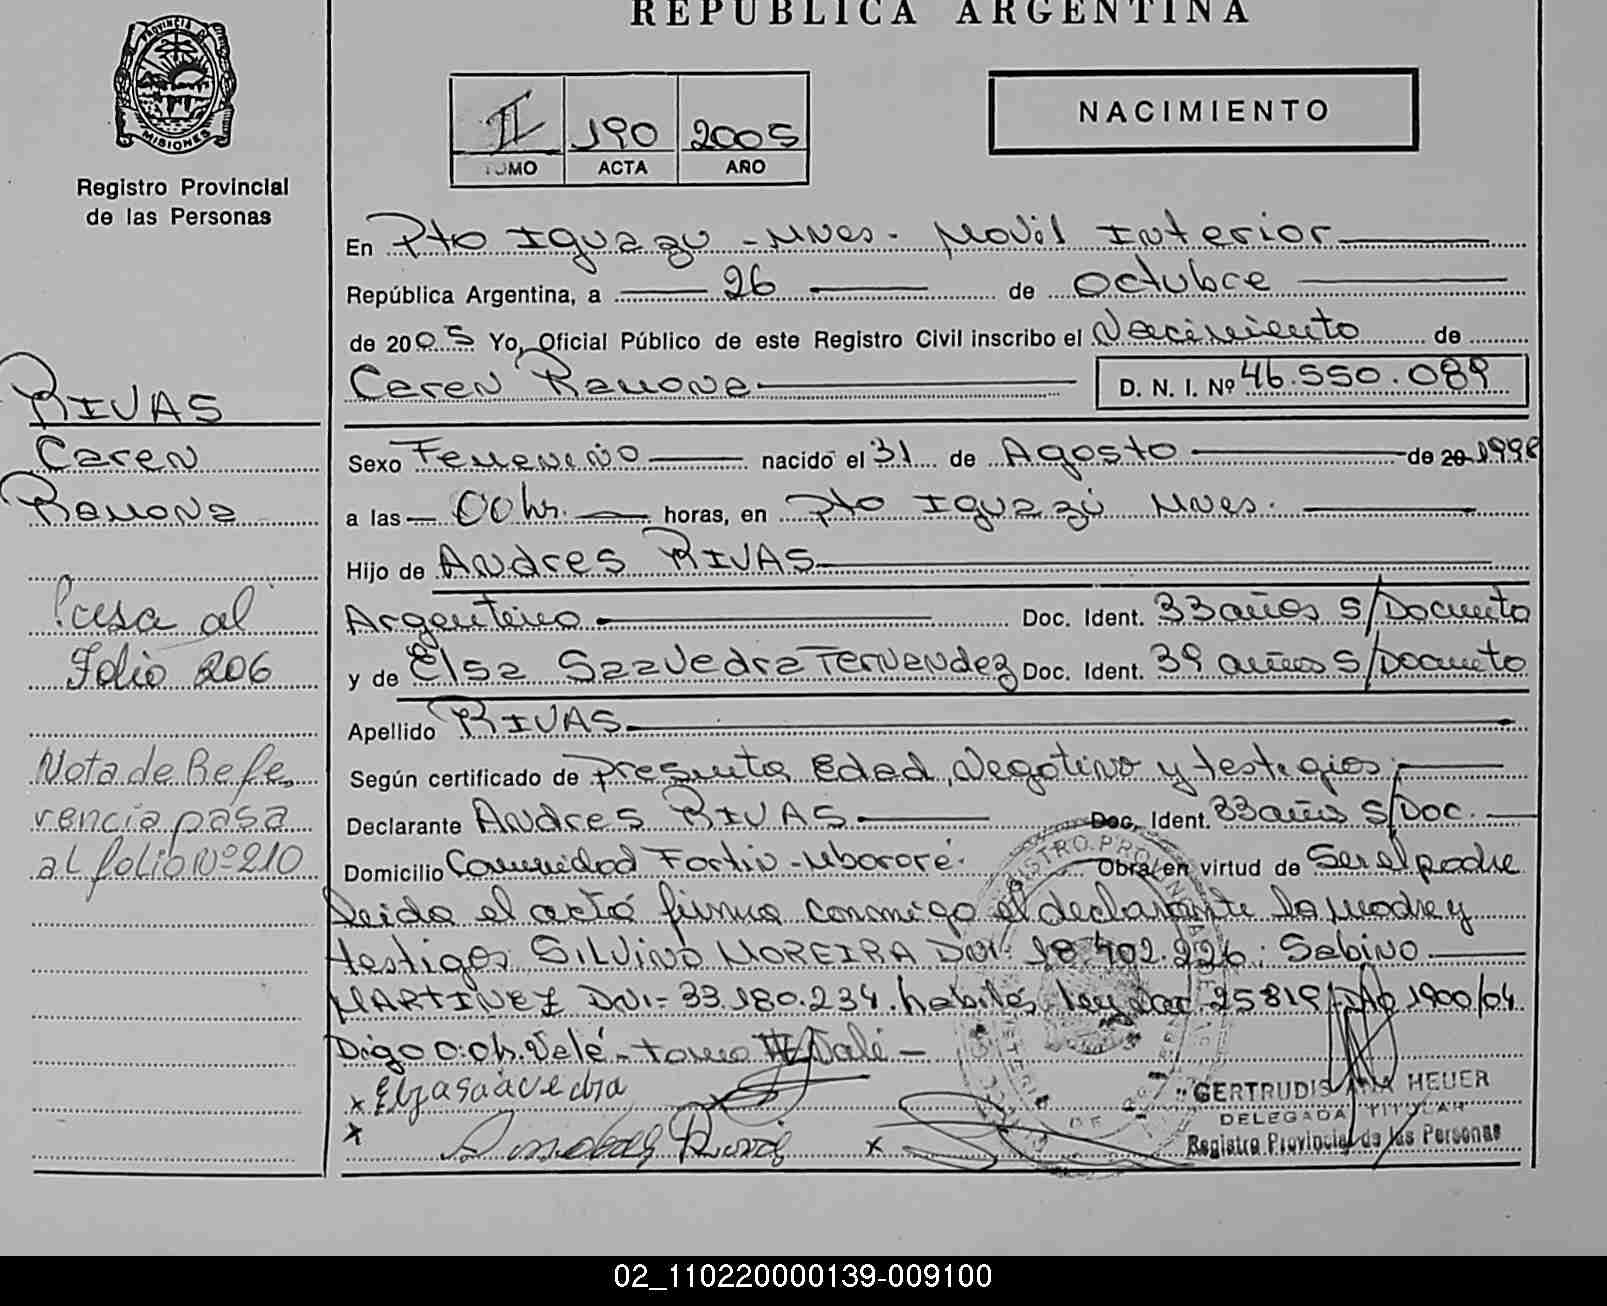 REPUBLICA ARGENTINA
PROVINCIA DE MISIONES
Registro Provincial
de las Personas
II 190 2005
TOMO ACTA AÑO
NACIMIENTO
En Pto Iguazu - Mnes. Movil Interior
República Argentina, a 26 de Octubre
de 2005 Yo, Oficial Público de este Registro Civil inscribo el Nacimiento de
Caren Ramona D. N. I. Nº 46.550.089
RIVAS
Caren
Ramona
Pasa al
Folio 206
Nota de Refe
rencia pasa
al folio Nº 210
Sexo Femenino nacido el 31 de Agosto de 20 1998
a las 00 hr. horas, en Pto Iguazú Mnes.
Hijo de Andres RIVAS
Argentino Doc. Ident. 33 años S/Documto
y de Elsa Saavedra Fernendez Doc. Ident. 39 años S/Documto
Apellido RIVAS
Según certificado de Presunta Edad, Negativo y testigos
Declarante Andres RIVAS Doc. Ident. 33 años S/Doc.
Domicilio Comunidad Fortin - Mbororé. Obra en virtud de Ser el padre
Leida el acta firma conmigo el declarante la madre y
testigos SILVINO MOREIRA DNI: 18.402.226; Sabino
MARTINEZ DNI - 33.180.234. habiles ley 25819 1900/04.
Digo 0:0h. Vale - tomo II Vale -
x Elza saavedra
x x
GERTRUDIS ANA HEUER
DELEGADA TITULAR
Registro Provincial de las Personas
02_110220000139-009100